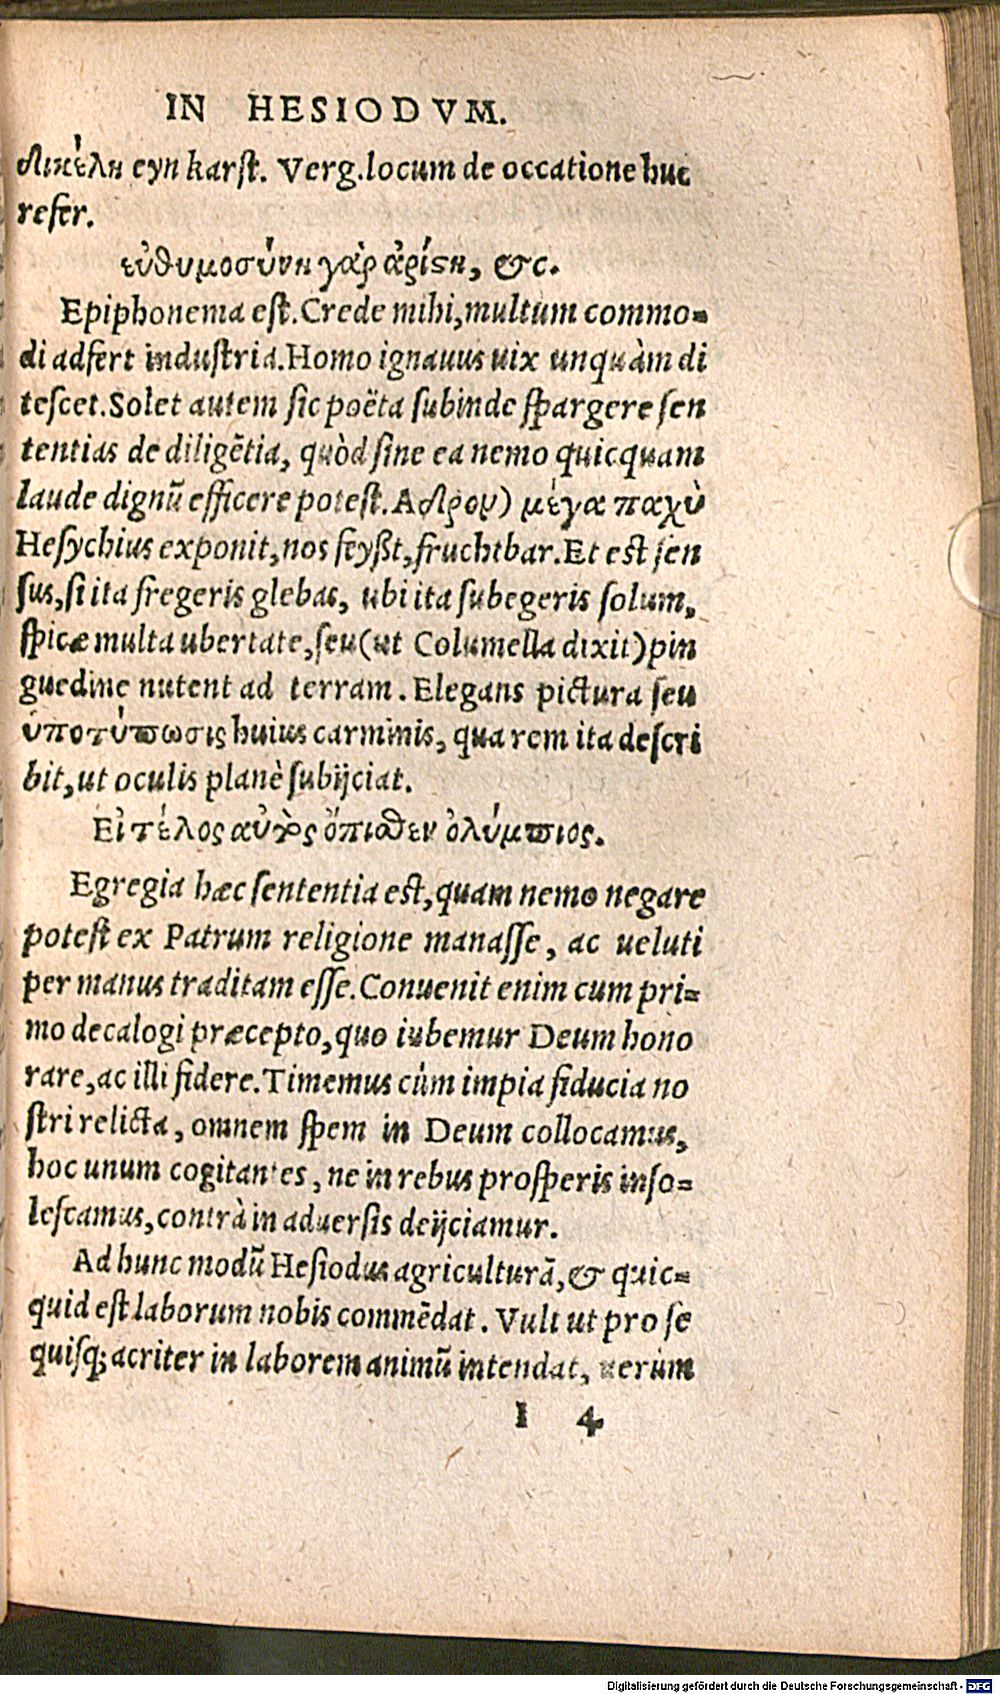 IN HESIODVM.
δικέλη eyn karst. Verg. locum de occatione huc
refer.
εὐθυμοσύνη γὰρ ἀρίϛη, &c.
Epiphonema est. Crede mihi, multum commo-
di adfert industria. Homo ignauus uix unquàm di
tescet. Solet autem sic poëta subinde spargere sen
tentias de diligẽtia, quòd sine ea nemo quicquam
laude dignũ efficere potest. Αδρον) μέγα παχὺ
Hesychius exponit, nos feyßt, fruchtbar. Et est sen
sus, si ita fregeris glebas, ubi ita subegeris solum,
spicæ multa ubertate, seu (ut Columella dixit) pin
guedine nutent ad terram. Elegans pictura seu
ὑποτύπωσις huius carminis, qua rem ita descri
bit, ut oculis planè subijciat.
Εἰ τέλος αὐτὸς ὄπισθεν ὀλύμπιος.
Egregia hæc sententia est, quam nemo negare
potest ex Patrum religione manasse, ac ueluti
per manus traditam esse. Conuenit enim cum pri-
mo decalogi præcepto, quo iubemur Deum hono
rare, ac illi fidere. Timemus cùm impia fiducia no
stri relicta, omnem spem in Deum collocamus,
hoc unum cogitantes, ne in rebus prosperis inso-
lescamus, contrà in aduersis deijciamur.
Ad hunc modũ Hesiodus agriculturã, & quic-
quid est laborum nobis commẽdat. Vult ut pro se
quisq; acriter in laborem animũ intendat, uerùm
I 4
Digitalisierung gefördert durch die Deutsche Forschungsgemeinschaft - DFG